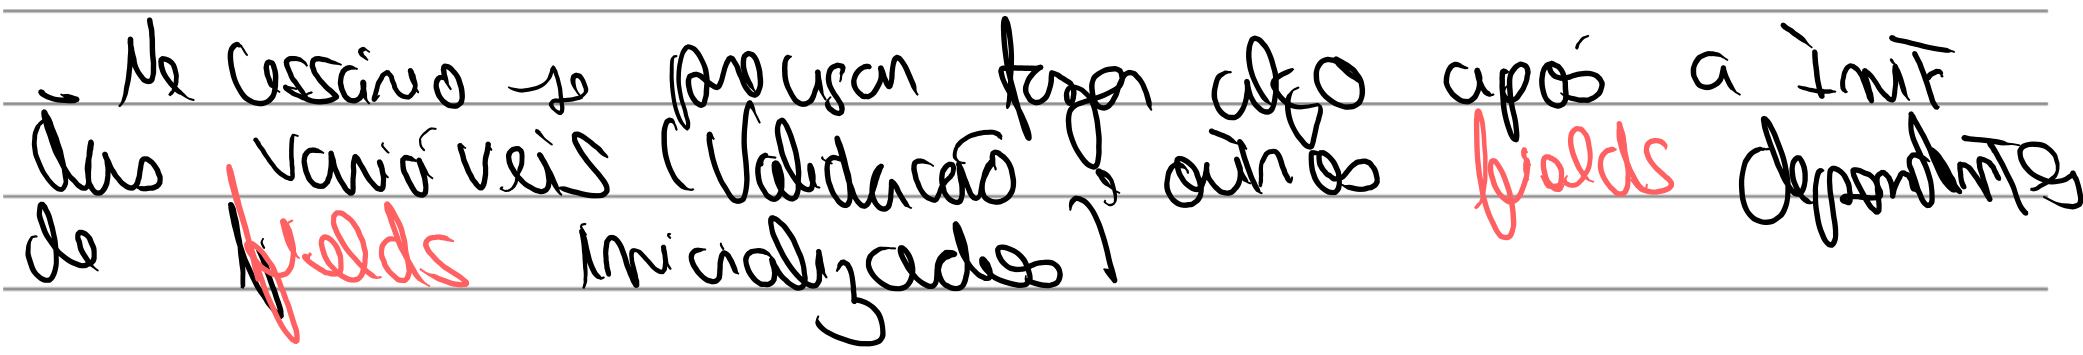 - Necessário se precisar fazer algo após a init
das variáveis (Validação, outros fields dependentes
de fields inicializados)